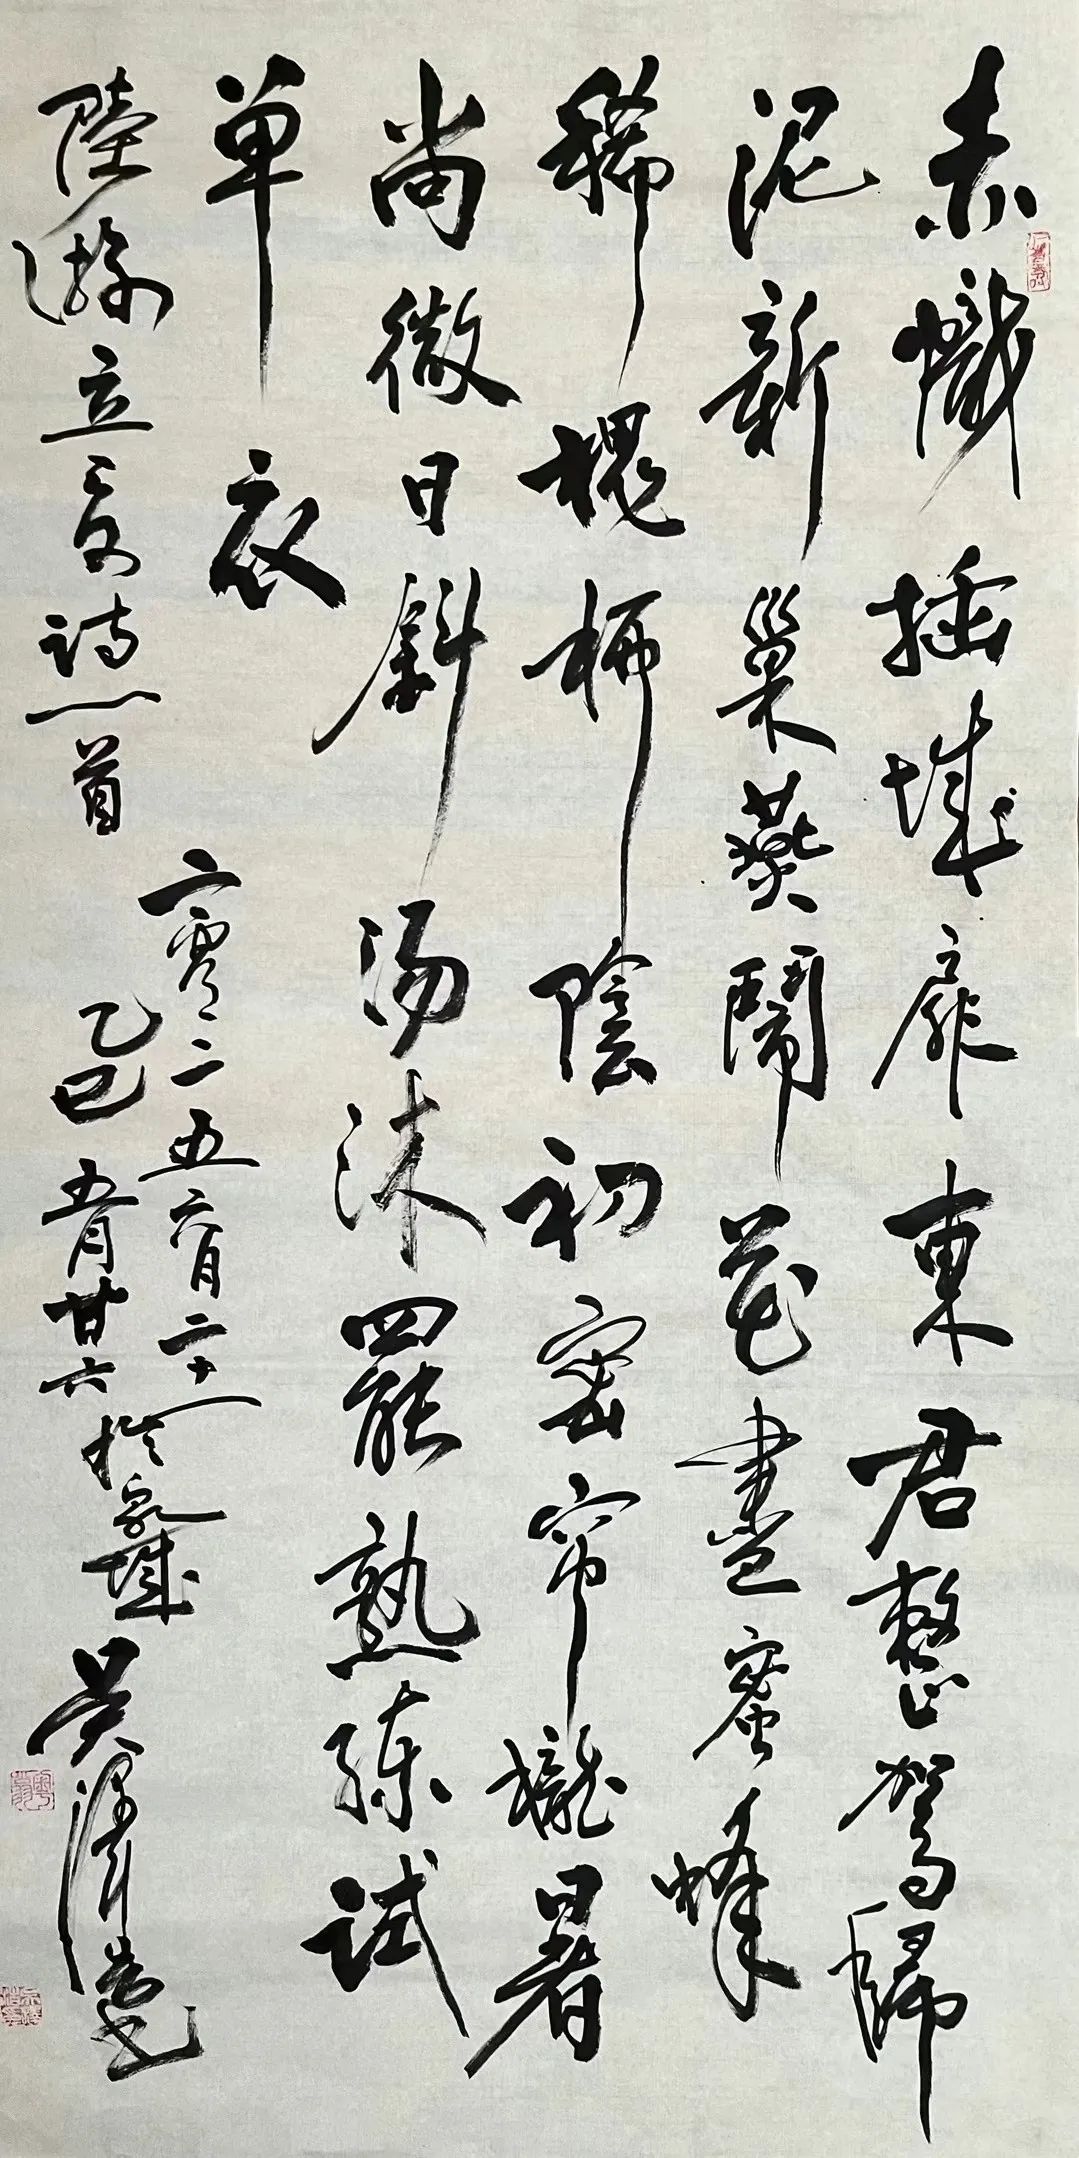 赤幟插城扉東君整駕歸
泥新巢燕鬧花盡蜜蜂
稀槐柳陰初密帘櫳暑
尚微日斜湯沐罷熟練試
单衣
陸游立夏詩一首
二零二五六月二十一
乙巳五月廿六於乳城
吴